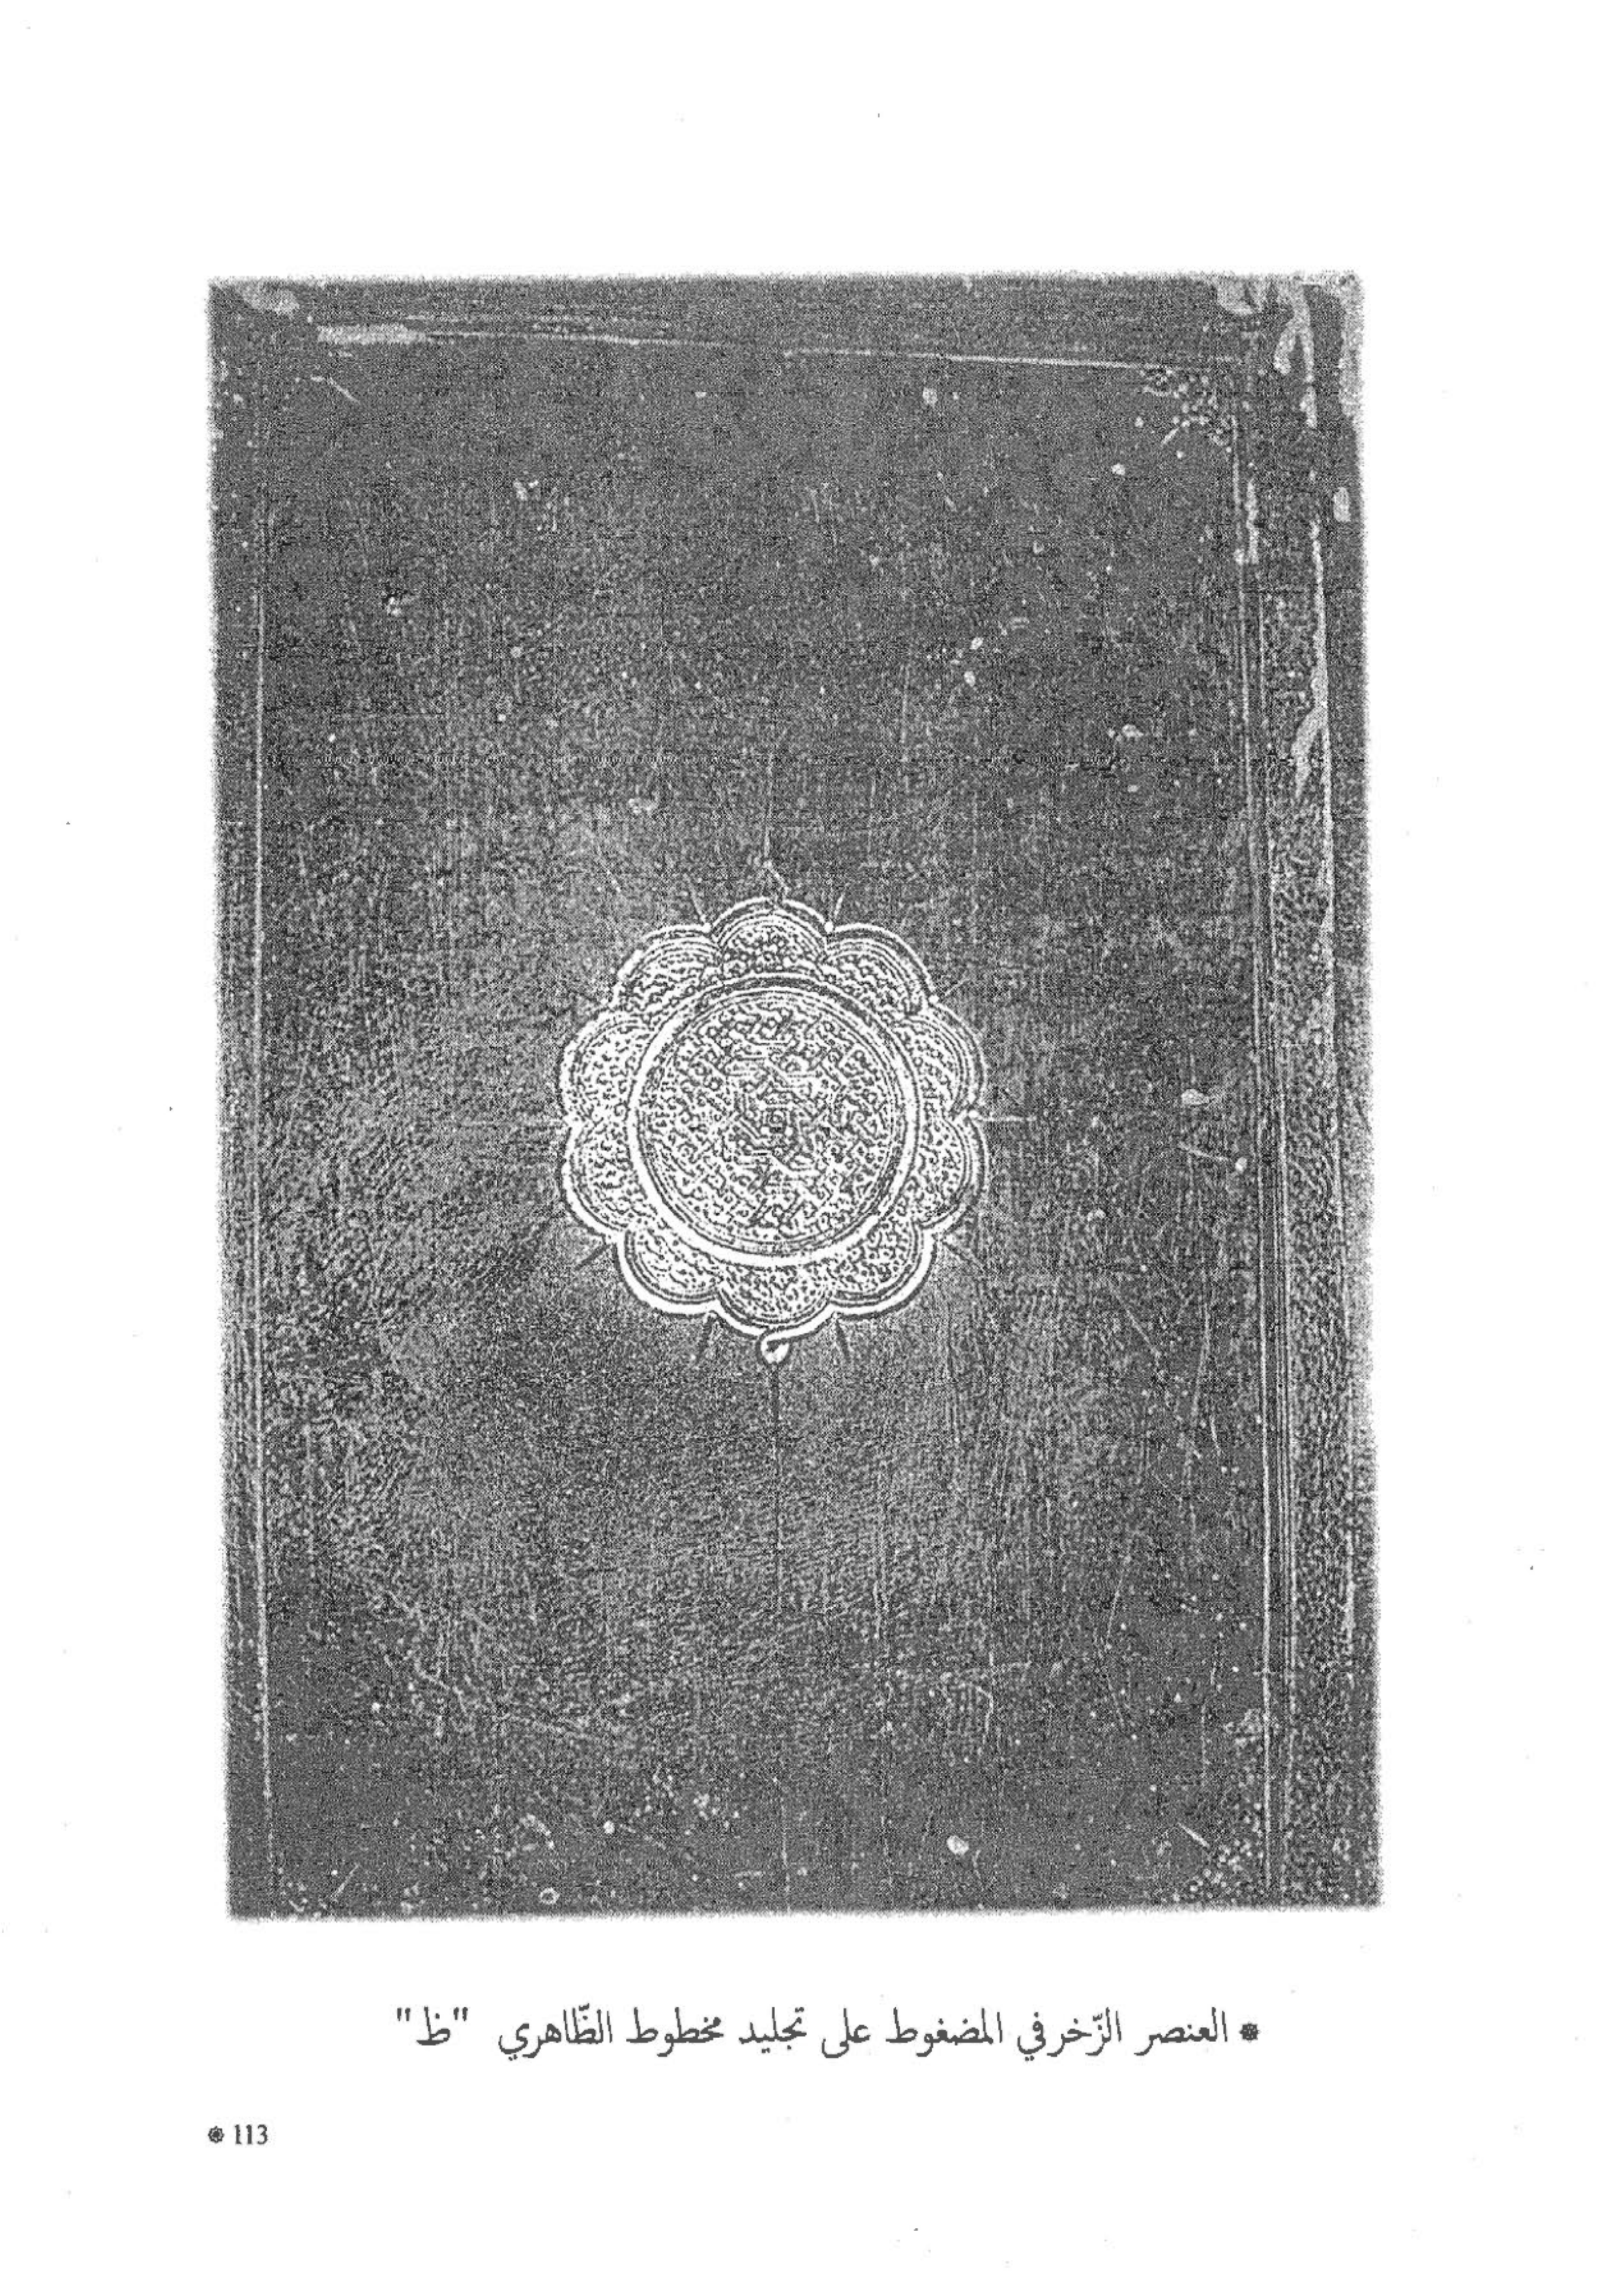 * العنصر الزّخرفي المضغوط على تجليد مخطوط الظّاهري "ظ"
* 113